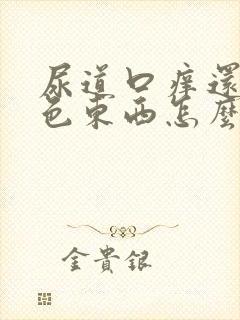 尿道口痒還
色東西怎麼
金貴銀